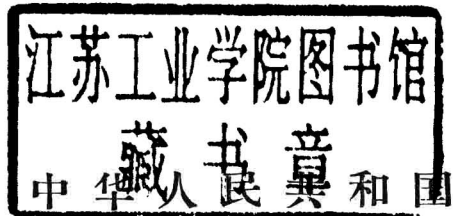 江苏工业学院图书馆
藏书章
中华人民共和国